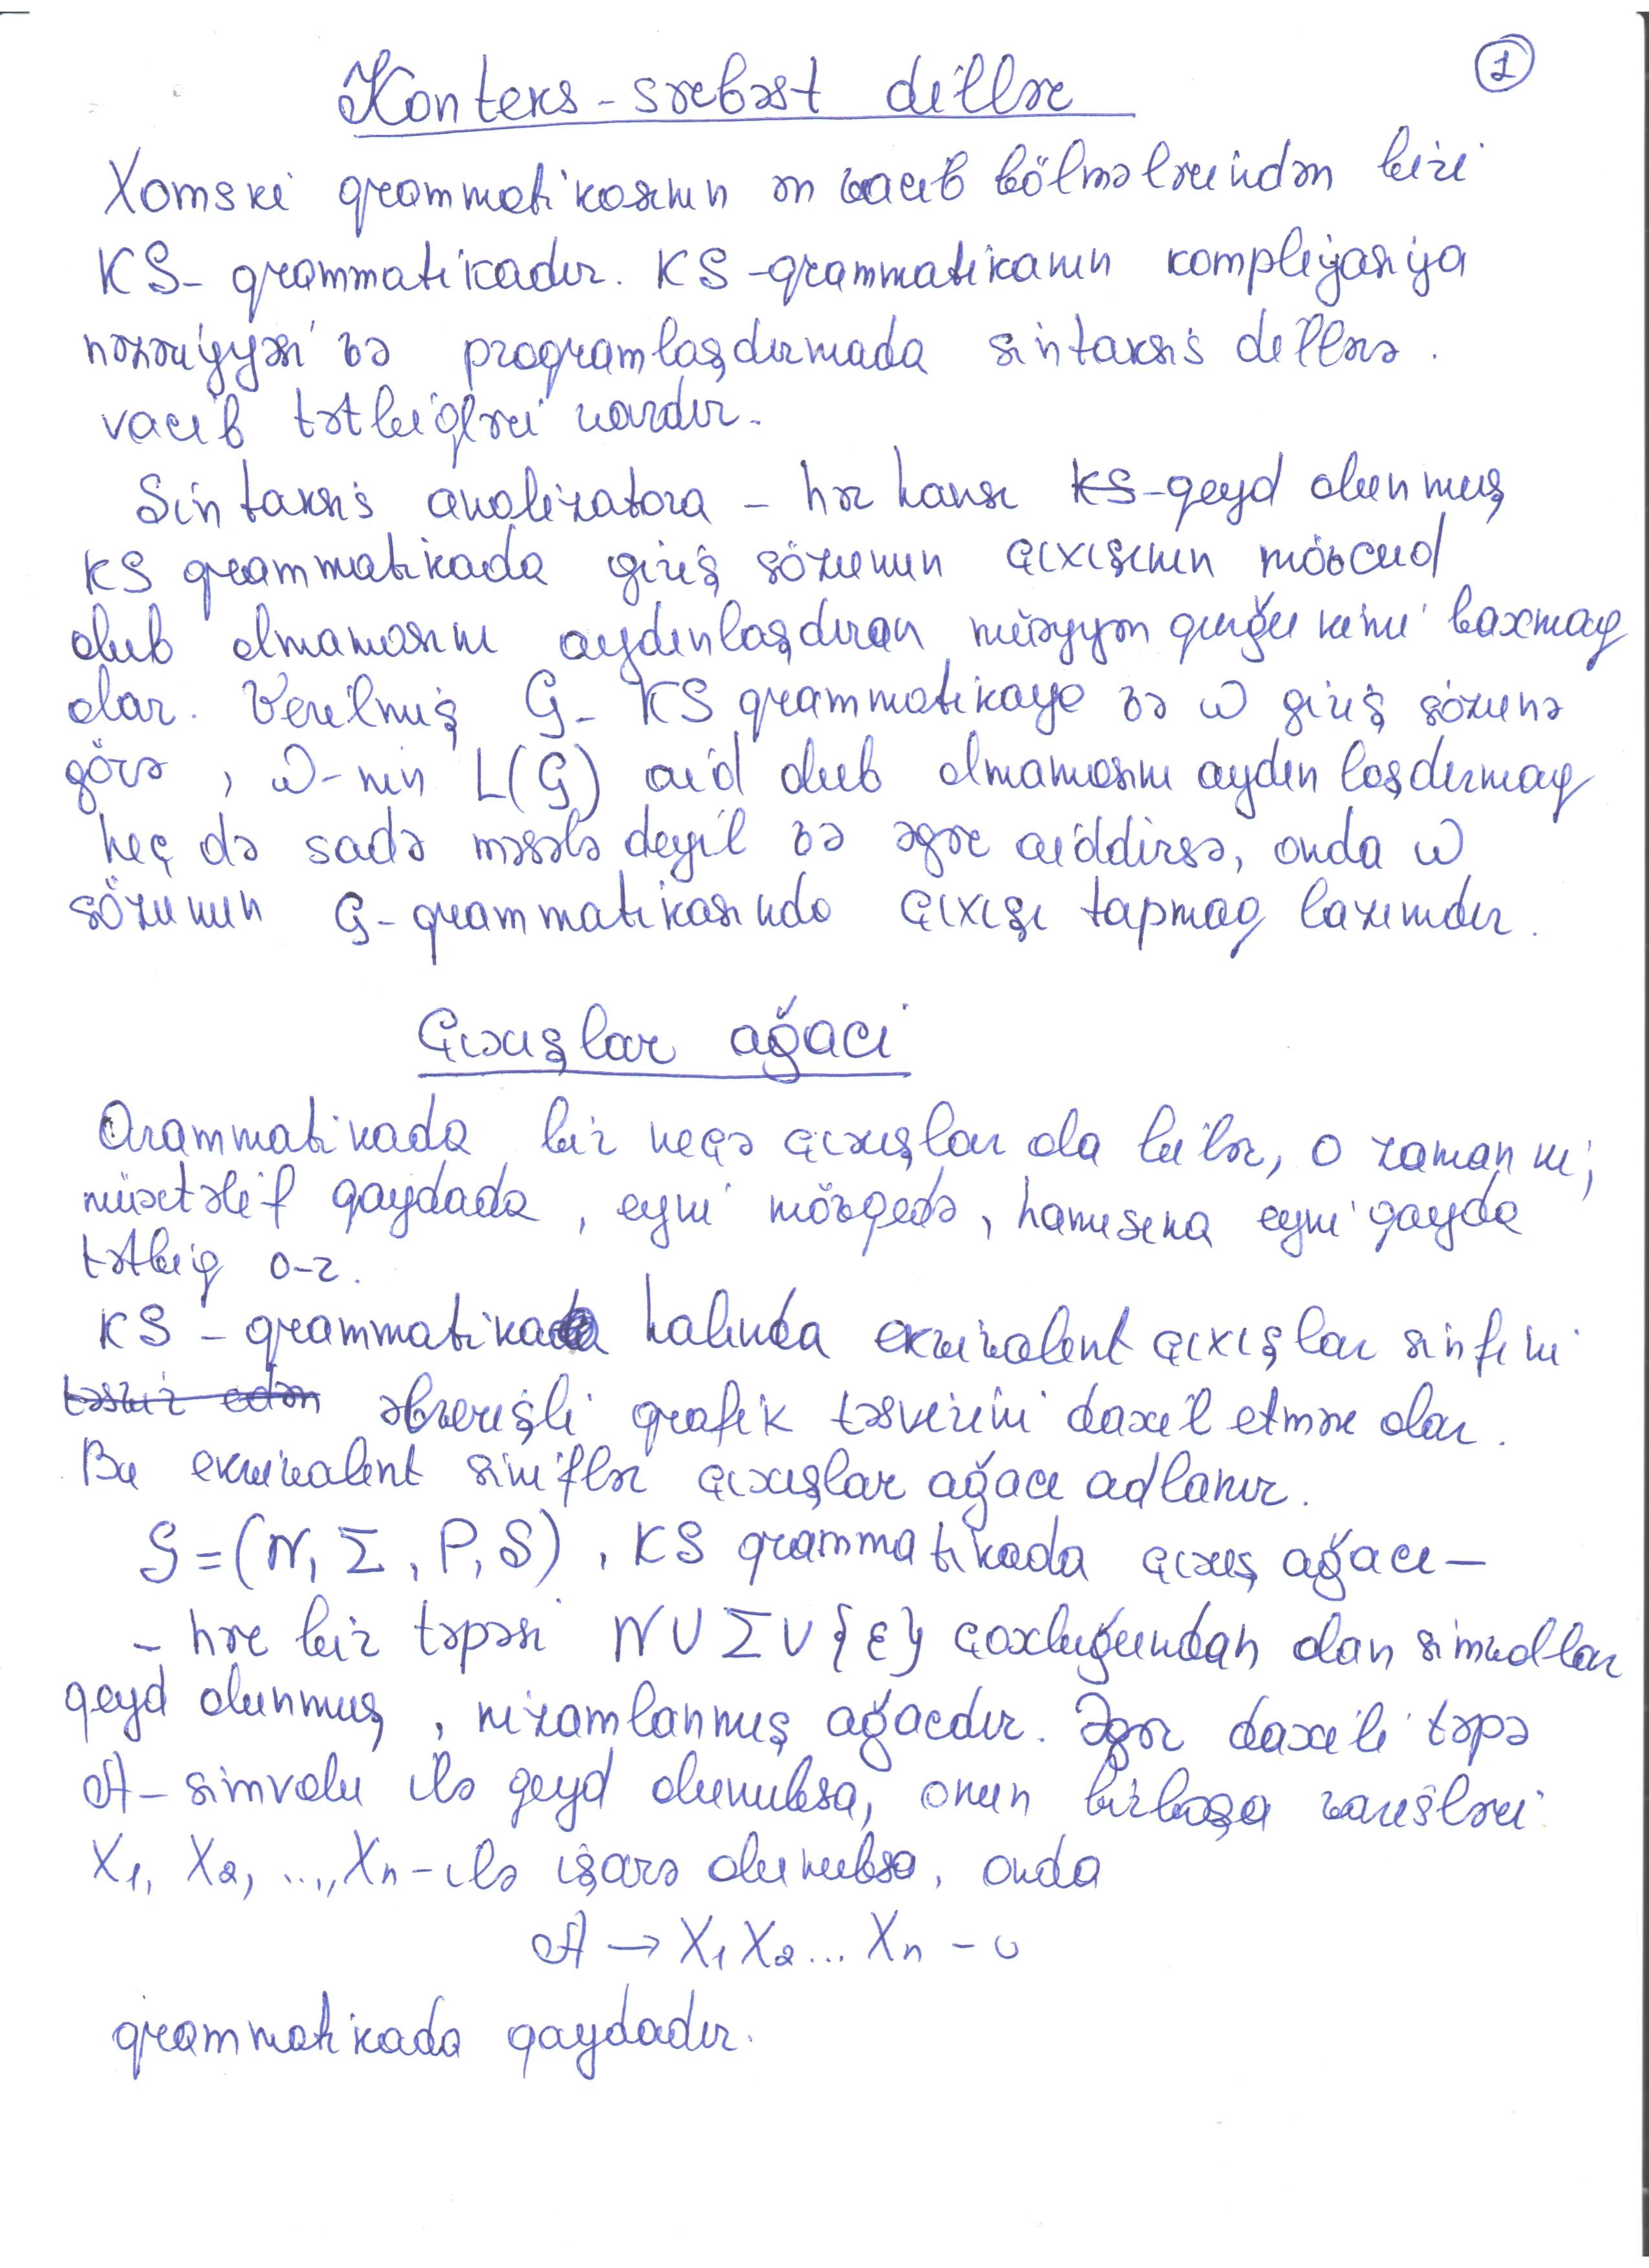 1
Konteks-sərbəst dillər
Xomski qrammatikasının ən vacib bölmələrindən biri
KS- qrammatikadır. KS-qrammatikanın kompliyasiya
nəzəriyyəsi və programlaşdırmada sintaksis dillərə.
vacib tətbiqləri vardır.
Sintaksis analizatora - hər hansı KS-qeyd olunmuş
KS qrammatikada giriş sözünün çıxışının mövcud
olub olmamasını aydınlaşdıran müəyyən qurğu kimi baxmaq
olar. Verilmiş G- KS qrammatikaya və ω giriş sözünə
görə, ω-nin L(G) aid olub olmamasını aydınlaşdırmaq
heç də sadə məsələ deyil və əgər aiddirsə, onda ω
sözünün G-qrammatikasında çıxışı tapmaq lazımdır.
Çıxışlar ağacı
Qrammatikada bir neçə çıxışlar ola bilər, o zaman ki;
müxtəlif qaydada, eyni mövqedə, hamısına eyni qayda
tətbiq o-r.
KS - qrammatika halında ekvivalent çıxışlar sinfini
təsvir edən əlverişli qrafik təsvirini daxil etmək olar.
Bu ekvivalent siniflər çıxışlar ağacı adlanır.
G=(N, Σ, P, S), KS qrammatikada çıxış ağacı-
- hər bir təpəsi N∪Σ∪{ε} çoxluğundan olan simvollar
qeyd olunmuş, nizamlanmış ağacdır. Əgər daxili təpə
A-simvolu ilə qeyd olunubsa, onun birbaşa varisləri
X₁, X₂, ..., Xn-ilə işarə olunubsa, onda
A → X₁X₂... Xn - u
qrammatikada qaydadır.